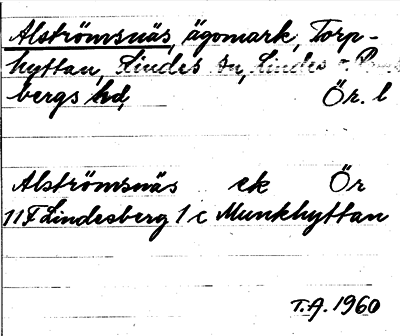 Alströmsnäs, ägomark, Torp-
hyttan, Lindes sn, Lindes o. Rams-
bergs hd, Ör. l
Alströmsnäs ek Ör
11F Lindesberg 1 c Munkhyttan
T.A. 1960